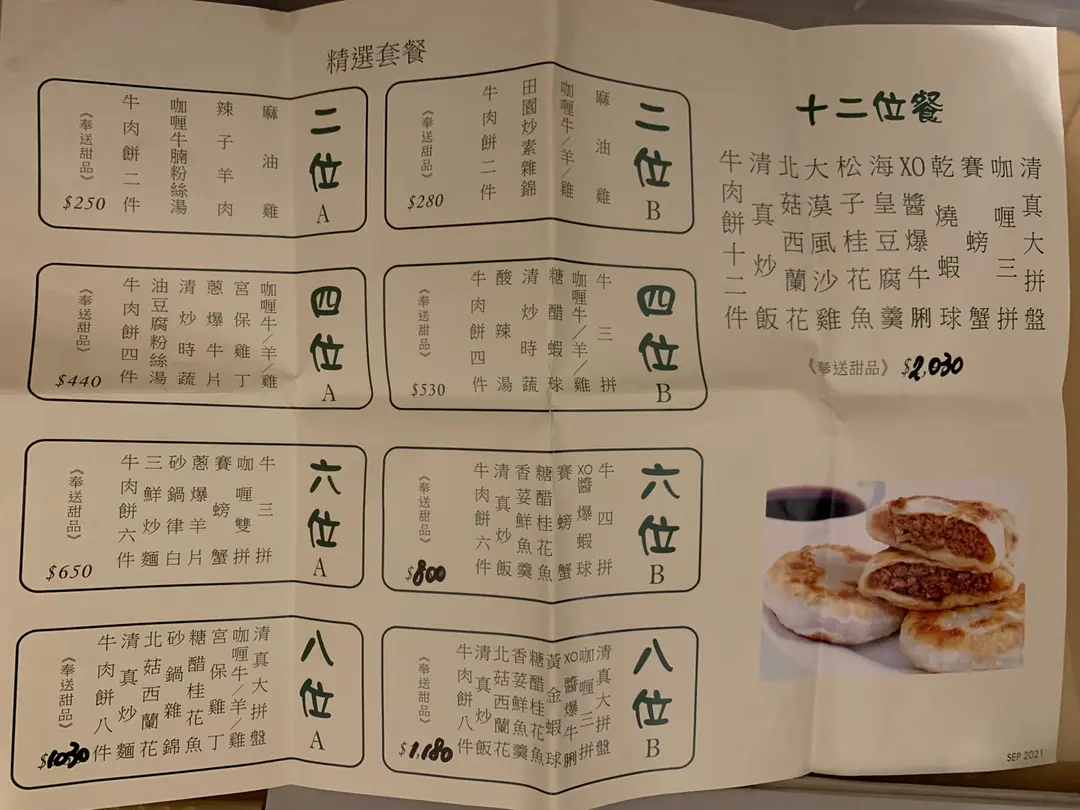 精選套餐
二位 A
麻油雞
辣子羊肉
咖喱牛腩粉絲湯
牛肉餅二件
《奉送甜品》
$250
二位 B
麻油雞
咖喱牛/羊/雞
田園炒素雜錦
牛肉餅二件
《奉送甜品》
$280
四位 A
咖喱牛/羊/雞
宮保雞丁
蔥爆牛片
清炒時蔬
油豆腐粉絲湯
牛肉餅四件
《奉送甜品》
$440
四位 B
牛三拼
咖喱牛/羊/雞
糖醋蝦球
清炒時蔬
酸辣湯
牛肉餅四件
《奉送甜品》
$530
六位 A
牛三拼
咖喱雙拼
賽螃蟹
蔥爆羊片
砂鍋津白
三鮮炒麵
牛肉餅六件
《奉送甜品》
$650
六位 B
牛四拼
XO醬爆蝦球
賽螃蟹
糖醋桂花魚
香荽鮮魚羹
清真炒飯
牛肉餅六件
《奉送甜品》
$800
八位 A
清真大拼盤
咖喱牛/羊/雞
宮保雞丁
糖醋桂花魚
砂鍋雜錦
北菇西蘭花
清真炒麵
牛肉餅八件
《奉送甜品》
$1030
八位 B
清真大拼盤
咖喱三拼
XO醬爆牛脷
黃金蝦球
糖醋桂花魚
香荽鮮魚羹
北菇西蘭花
清真炒飯
牛肉餅八件
《奉送甜品》
$1,180
十二位餐
清真大拼盤
咖喱三拼
賽螃蟹
乾燒蝦球
XO醬爆牛脷
海皇豆腐羹
松子桂花魚
大漠風沙雞
北菇西蘭花
清真炒飯
牛肉餅十二件
《奉送甜品》 $2,030
SEP 2021